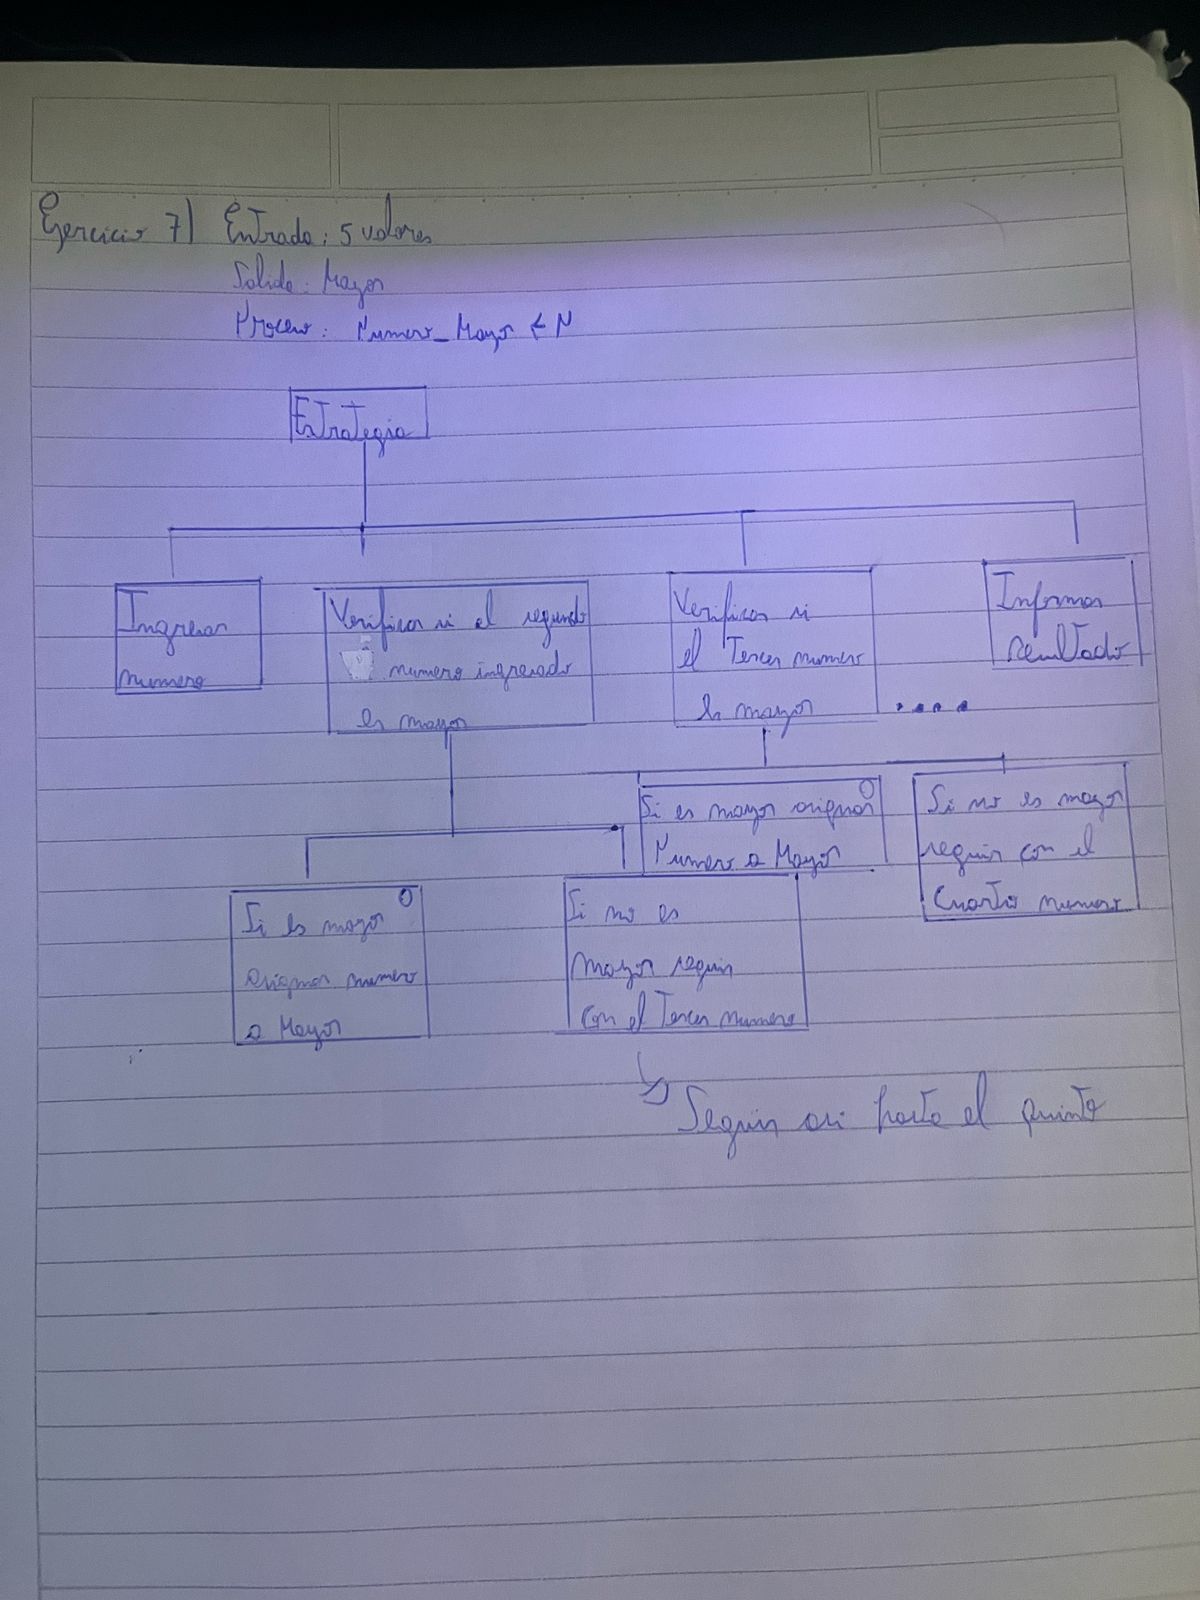 Ejercicio 7) Entrada: 5 valores
Salida: Mayor
Proceso: Numero_Mayor ← N
Estrategia
Ingresar
numero
Verificar si el segundo
numero ingresado
es mayor
Verificar si
el Tercer numero
es mayor
....
Informar
resultado
Si es mayor asignar
Numero a Mayor
Si no es mayor
seguir con el
Cuarto numero
Si es mayor
asignar numero
a Mayor
Si no es
mayor seguir
con el Tercer numero
Seguir asi hasta el quinto